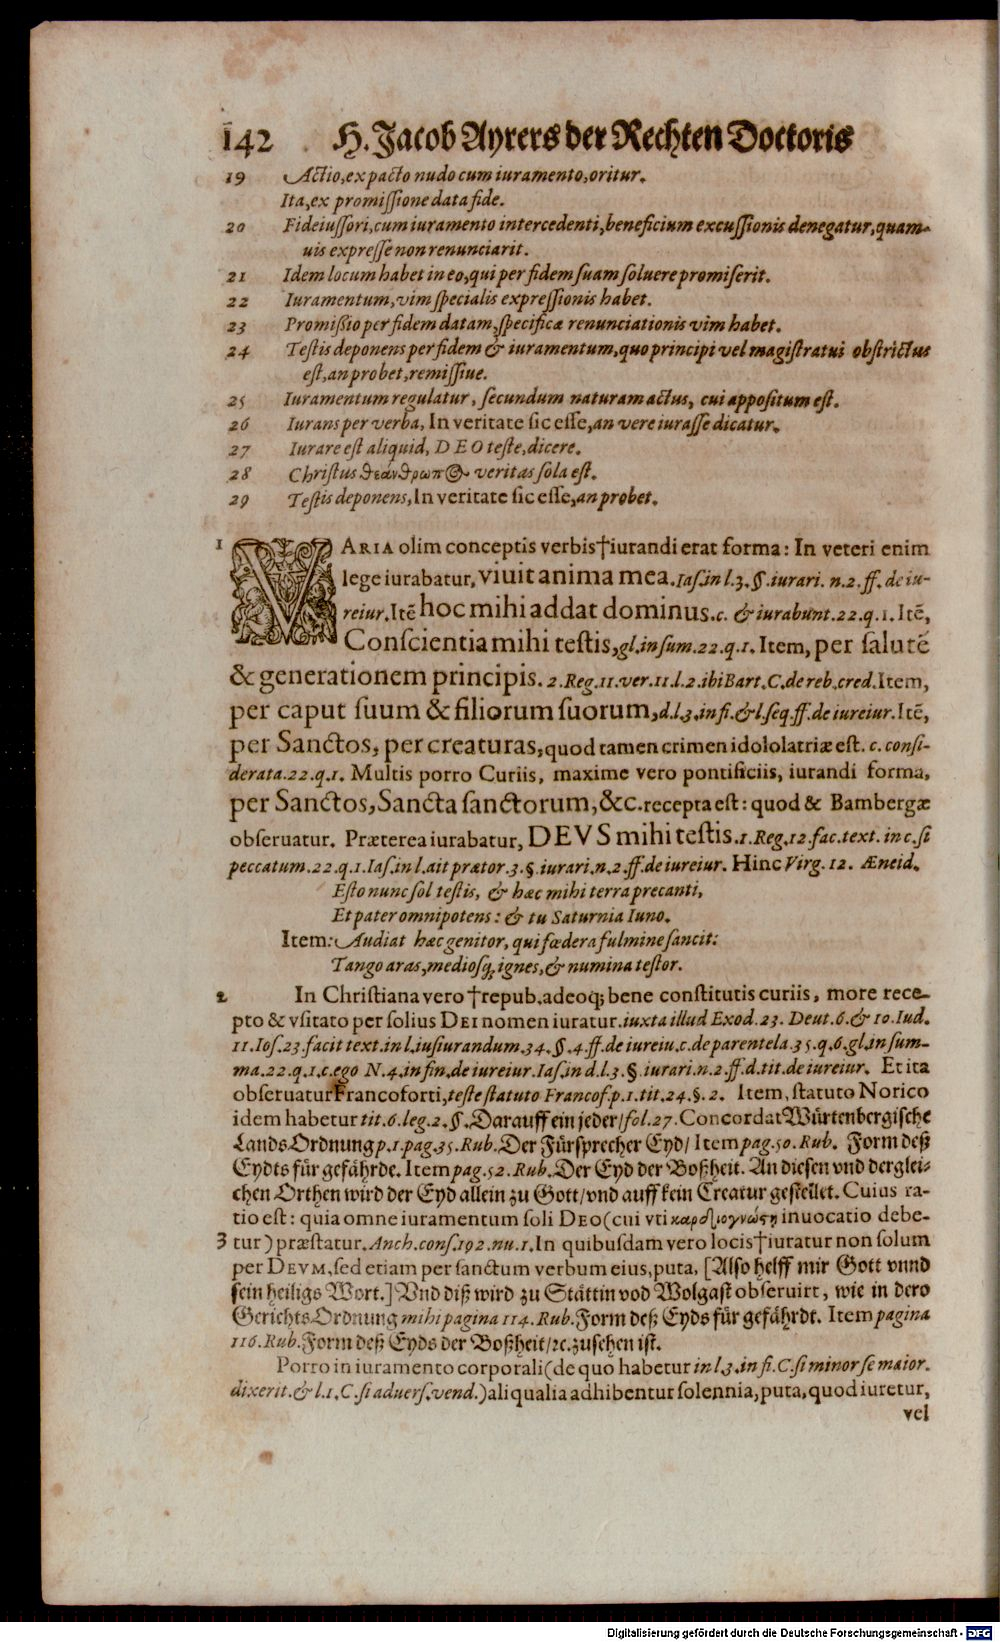 142 H. Jacob Ayrers der Rechten Doctoris
19 Actio, ex pacto nudo cum iuramento, oritur.
Ita, ex promissione data fide.
20 Fideiussori, cum iuramento intercedenti, beneficium excussionis denegatur, quam-
uis expresse non renunciarit.
21 Idem locum habet in eo, qui per fidem suam soluere promiserit.
22 Iuramentum, vim specialis expressionis habet.
23 Promißio per fidem datam, specificæ renunciationis vim habet.
24 Testis deponens per fidem & iuramentum, quo principi vel magistratui obstrictus
est, an probet, remissiue.
25 Iuramentum regulatur, secundum naturam actus, cui appositum est.
26 Iurans per verba, In veritate sic esse, an vere iurasse dicatur.
27 Iurare est aliquid, DEO teste, dicere.
28 Christus θεάνθρωπος veritas sola est.
29 Testis deponens, In veritate sic esse, an probet.
1 VARIA olim conceptis verbis † iurandi erat forma: In veteri enim
lege iurabatur, viuit anima mea. Ias. in l. 3. §. iurari. n. 2. ff. de iu-
reiur. Itē hoc mihi addat dominus. c. & iurabunt. 22. q. 1. Itē,
Conscientia mihi testis, gl. in sum. 22. q. 1. Item, per salutē
& generationem principis. 2. Reg. 11. ver. 11. l. 2. ibi Bart. C. de reb. cred. Item,
per caput suum & filiorum suorum, d. l. 3. in fi. & l. seq. ff. de iureiur. Itē,
per Sanctos, per creaturas, quod tamen crimen idololatriæ est. c. consi-
derata. 22. q. 1. Multis porro Curiis, maxime vero pontificiis, iurandi forma,
per Sanctos, Sancta sanctorum, &c. recepta est: quod & Bambergæ
obseruatur. Præterea iurabatur, DEVS mihi testis. 1. Reg. 12. fac. text. in c. si
peccatum. 22. q. 1. Ias. in l. ait prætor. 3. §. iurari. n. 2. ff. de iureiur. Hinc Virg. 12. Æneid.
Esto nunc sol testis, & hæc mihi terra precanti,
Et pater omnipotens: & tu Saturnia Iuno.
Item: Audiat hæc genitor, qui fœdera fulmine sancit:
Tango aras, mediosq; ignes, & numina testor.
2 In Christiana vero † repub. adeoq; bene constitutis curiis, more rece-
pto & vsitato per solius DEI nomen iuratur. iuxta illud Exod. 23. Deut. 6. & 10. Iud.
11. Ios. 23. facit text. in l. iusiurandum. 34. §. 4. ff. de iureiu. c. de parentela. 35. q. 6. gl. in sum-
ma. 22. q. 1. c. ego N. 4. in fin. de iureiur. Ias. in d. l. 3. §. iurari. n. 2. ff. d. tit. de iureiur. Et ita
obseruatur Francoforti, teste statuto Francof. p. 1. tit. 24. §. 2. Item, statuto Norico
idem habetur tit. 6. leg. 2. §. Darauff ein jeder / fol. 27. Concordat Würtenbergische
Lands Ordnung p. 1. pag. 35. Rub. Der Fürsprecher Eyd / Item pag. 50. Rub. Form deß
Eydts für gefährde. Item pag. 52. Rub. Der Eyd der Boßheit. An diesen vnd derglei-
chen Orthen wird der Eyd allein zu Gott / vnd auff kein Creatur gestellet. Cuius ra-
tio est: quia omne iuramentum soli DEO (cui vti καρδιογνώςῃ inuocatio debe-
3 tur) præstatur. Anch. cons. 192. nu. 1. In quibusdam vero locis † iuratur non solum
per DEVM, sed etiam per sanctum verbum eius, puta, [Also helff mir Gott vnnd
sein heiligs Wort.] Vnd diß wird zu Stättin vod Wolgast obseruirt, wie in dero
Gerichts Ordnung mihi pagina 114. Rub. Form deß Eyds für gefährdt. Item pagina
116. Rub. Form deß Eyds der Boßheit / ꝛc. zusehen ist.
Porro in iuramento corporali (de quo habetur in l. 3. in fi. C. si minor se maior.
dixerit. & l. 1. C. si aduers. vend.) aliqualia adhibentur solennia, puta, quod iuretur,
vel
Digitalisierung gefördert durch die Deutsche Forschungsgemeinschaft - DFG